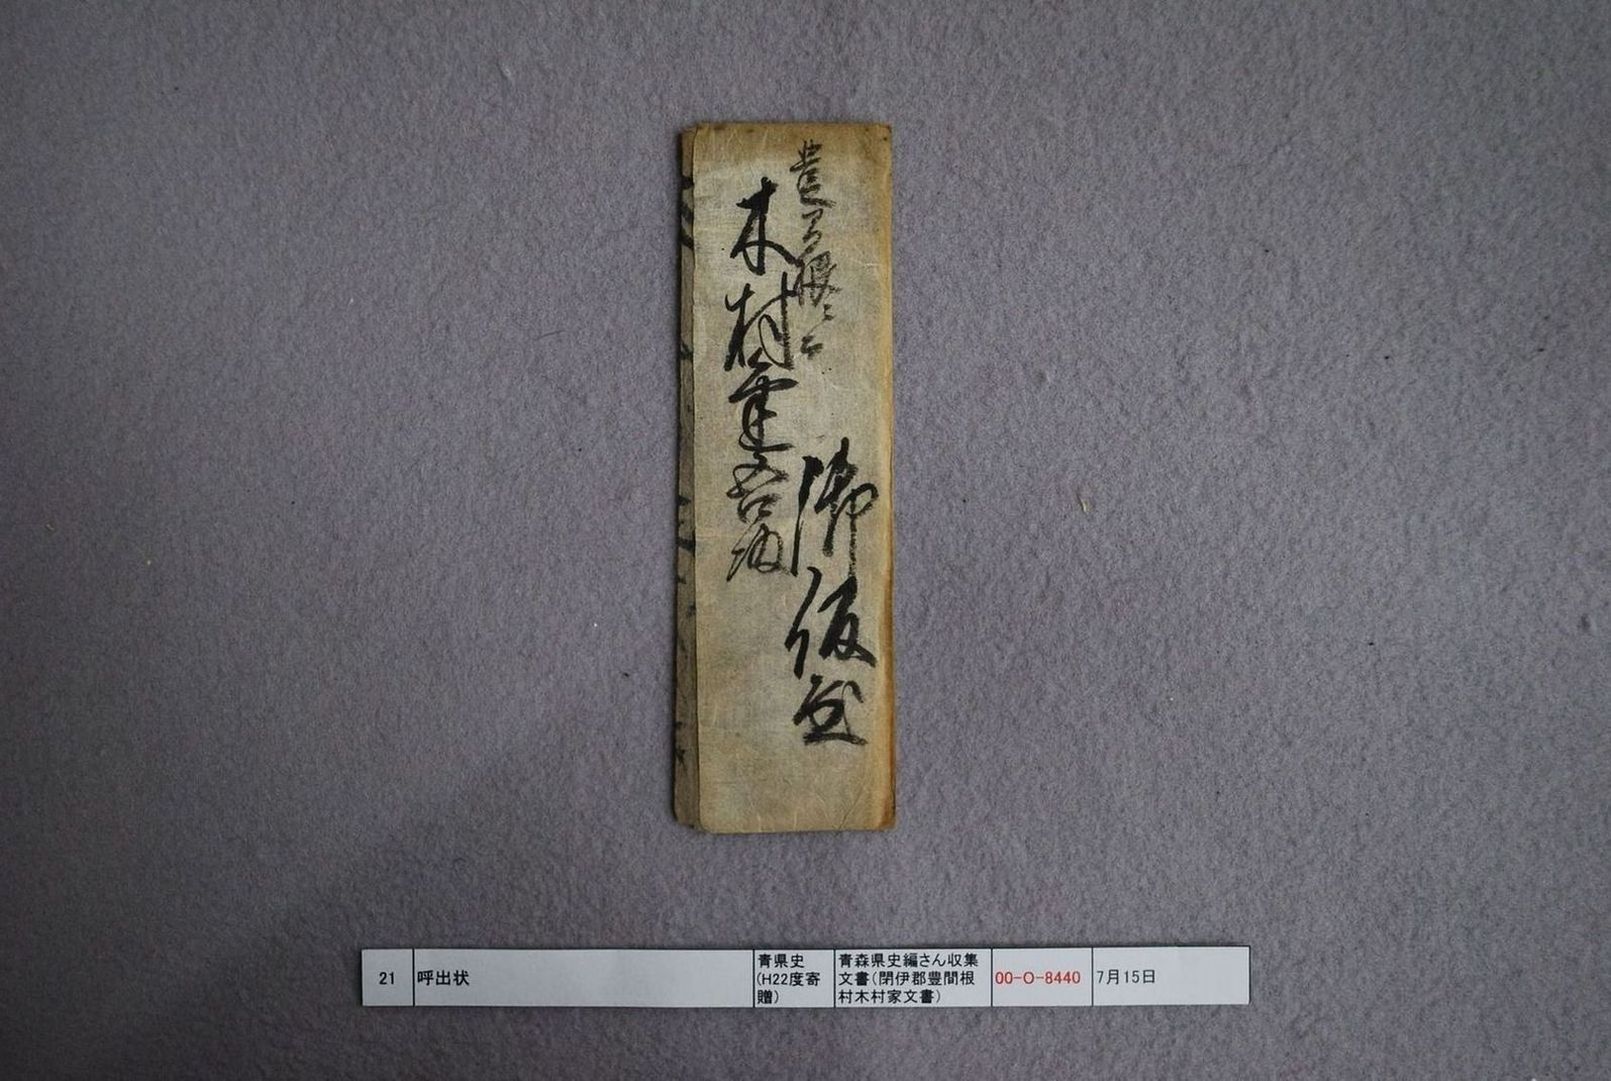 豊間根ニ而
御仮屋
木村軍吾殿
21
呼出状
青県史
(H22度寄
贈)
青森県史編さん収集
文書(閉伊郡豊間根
村木村家文書)
00-O-8440
7月15日